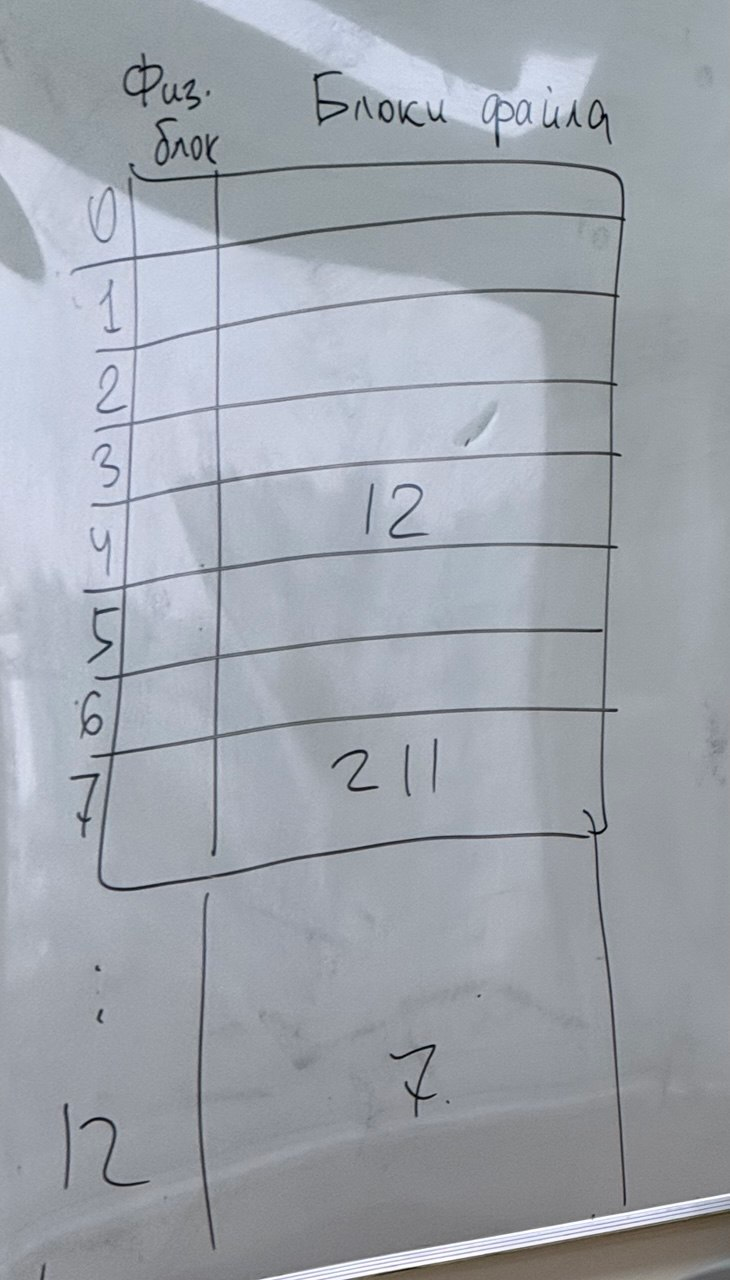 Физ. блок
Блоки файла
0
1
2
3
4 12
5
6
7 211
⋮
12 7.